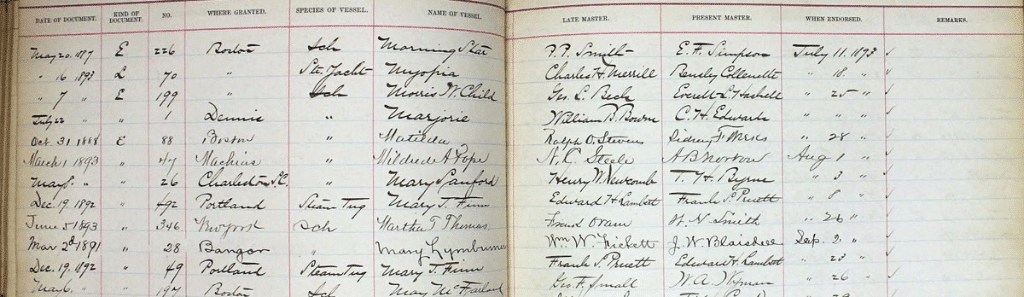 DATE OF DOCUMENT. KIND OF DOCUMENT. NO. WHERE GRANTED. SPECIES OF VESSEL. NAME OF VESSEL. LATE MASTER. PRESENT MASTER. WHEN ENDORSED. REMARKS.
May 20. 1897 E 226 Boston Sch Morning Star P. P. Smith E. F. Simpson July 11. 1893 ✓
" 16 1893 L 70 " Str. Yacht Myopia Charles H. Merrill " 18 " ✓
" 7 " E 199 " Sch Morris W. Child Geo. L. Beck Everett L. " 25 " ✓
July 22 " " 1 Dennis " Marjorie William B. C. H. Edwards ✓
Oct 31 1888 E 88 Boston " Matilda Ralph O. Stevens Sidney F. " 28 " ✓
March 1 1893 " 47 Machias " Mildred A Pope N. C. Steele A B Norton Aug 1 " ✓
May 8. " " 26 Charleston S.C. " Mary Sanford Henry W. Newcomb T. H. Byrne " 3 " ✓
Dec. 19. 1892 " 492 Portland Steam Tug Mary J. Finn Edward H Lambett Frank S. Pruett " 8 " ✓
June 5 1893 " 346 Newport Sch Martha T Thomas W. N Smith " 26 " ✓
Mar 2d 1891 " 28 Bangor " Mary Lymburner Wm W. J. W. Sep. 2 " ✓
Dec. 19. 1892 " 49 Portland Steam Tug Mary J. Finn Frank S. Pruett Edward H. Lambett " 23 " ✓
May 6. " " 197 Boston Sch May McFarland Geo F. Small W. A. Wyman " 26 " ✓
" 29 "